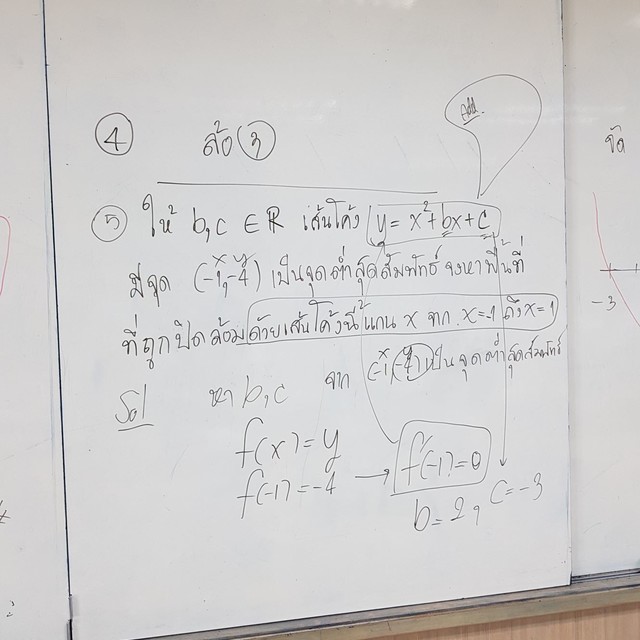 Add.
④ ล้อ ③
⑤ ให้ b,c ∈ ℝ เส้นโค้ง y = x²+bx+c
x y
มีจุด (-1,-4) เป็นจุดต่ำสุดสัมพัทธ์ จงหาพื้นที่
ที่ถูกปิดล้อมด้วยเส้นโค้งนี้ แกน x จาก x=-1 ถึง x=1
x y
Sol หา b,c จาก (-1,-4) เป็นจุดต่ำสุดสัมพัทธ์
f(x) = y
f(-1) = -4 → f'(-1) = 0
b = 2, c = -3
-3